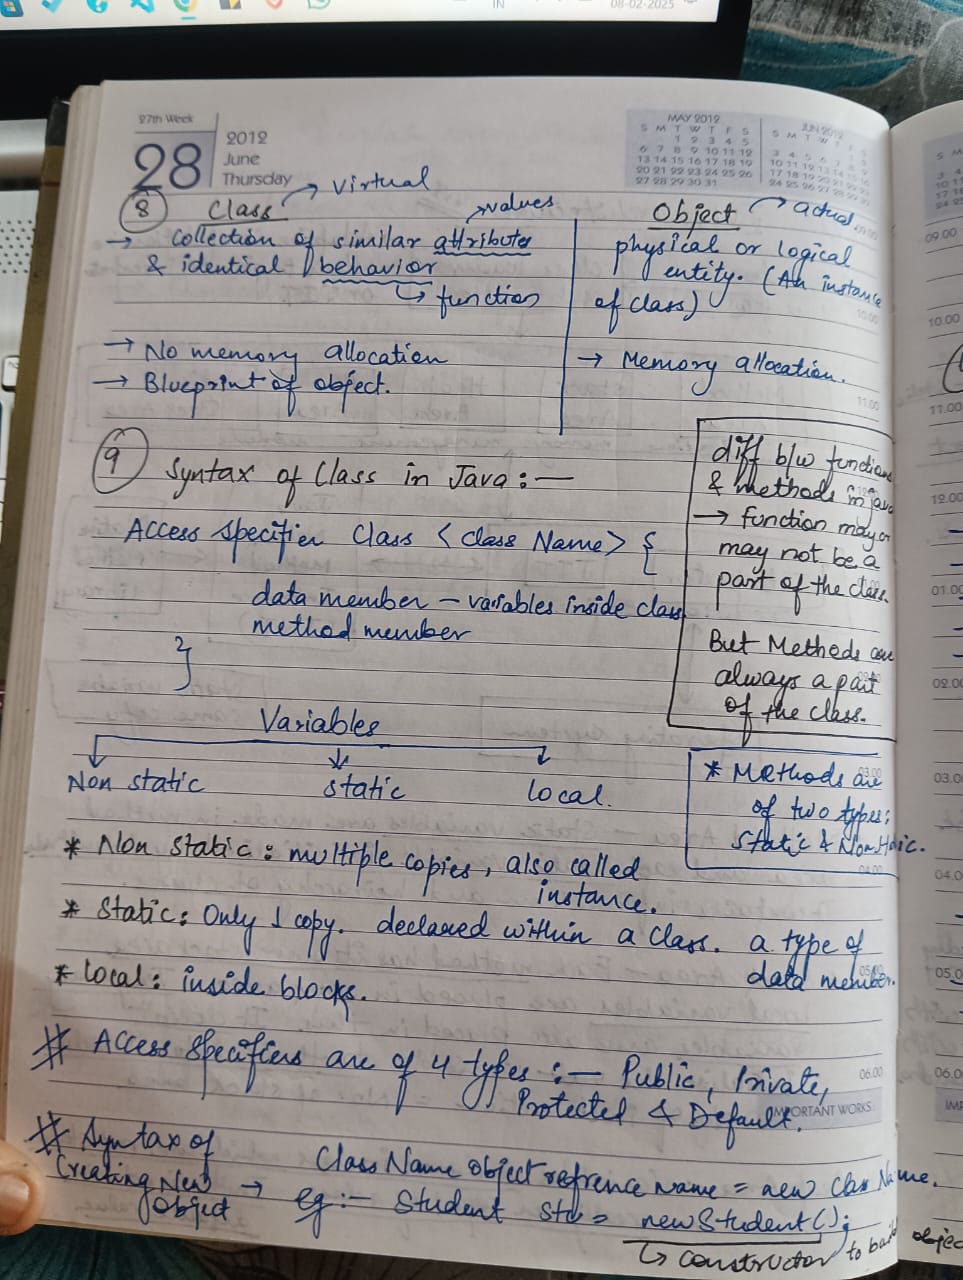 IN
08-02-2025
27th Week
28
2012
June
Thursday
MAY 2012
S M T W T F S
1 2 3 4 5
6 7 8 9 10 11 12
13 14 15 16 17 18 19
20 21 22 23 24 25 26
27 28 29 30 31
JUN 2012
8 Class → virtual
→ values
→ Collection of similar attribute
& identical behavior
↳ function
→ No memory allocation
→ Blueprint of object.
Object → actual
physical or logical
entity. (An instance
of class)
→ Memory allocation.
9 Syntax of Class in Java :—
Access Specifier Class < Class Name > {
data member – variables inside class
method member
}
diff b/w functions
& methods in java
→ function may or
may not be a
part of the class.
But Methods are
always a part
of the class.
* Methods are
of two types:
Static & Non static.
Variables
Non static static local.
* Non static: multiple copies, also called
instance.
* Static: Only 1 copy. declared within a class. a type of
data member.
* Local: inside blocks.
# Access Specifiers are of 4 types :— Public, Private,
Protected & Default.
IMPORTANT WORKS
# Syntax of
Creating New
Object → Class Name Object refrence name = new Class Name.
eg :— Student Stu = new Student();
↳ constructor to build object
09.00
10.00
11.00
12.00
01.00
02.00
03.00
04.00
05.00
06.00